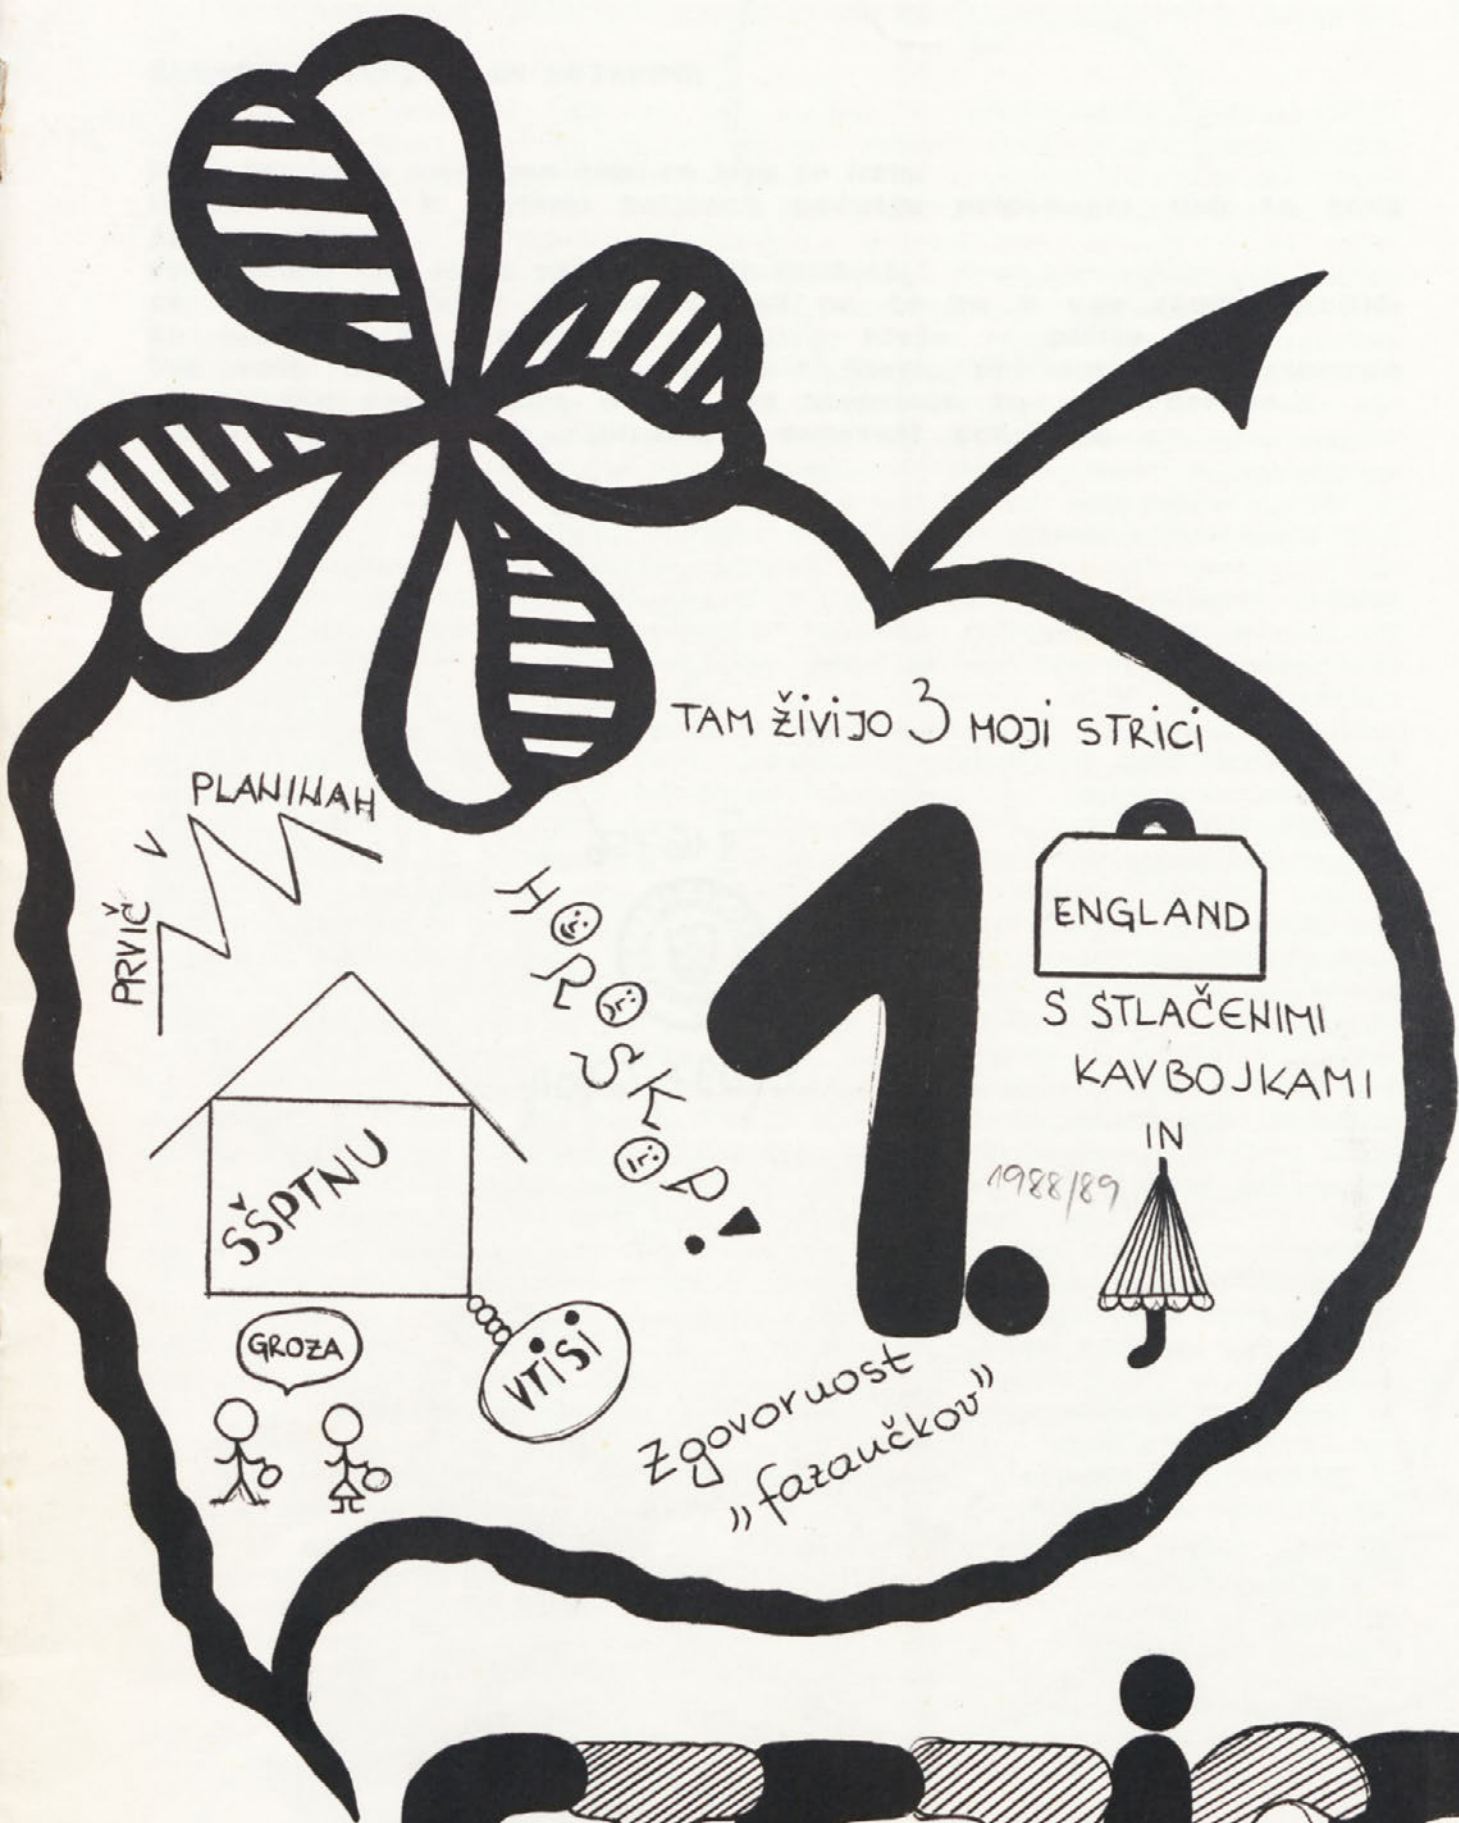 TAM ŽIVIJO 3 MOJI STRICI
PRVIČ V PLANINAH
HOROSKOP!
1.
ENGLAND
S STLAČENIMI
KAVBOJKAMI
IN
1988/89
SŠPTNU
GROZA
VTISI
Zgovornost
„fazančkov”